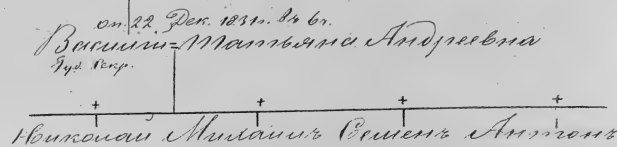 оп. 22 Дек. 1831г.
Василій = Татьяна Андреевна
Губ. Секр.
Николай Михаилъ Семенъ Антонъ